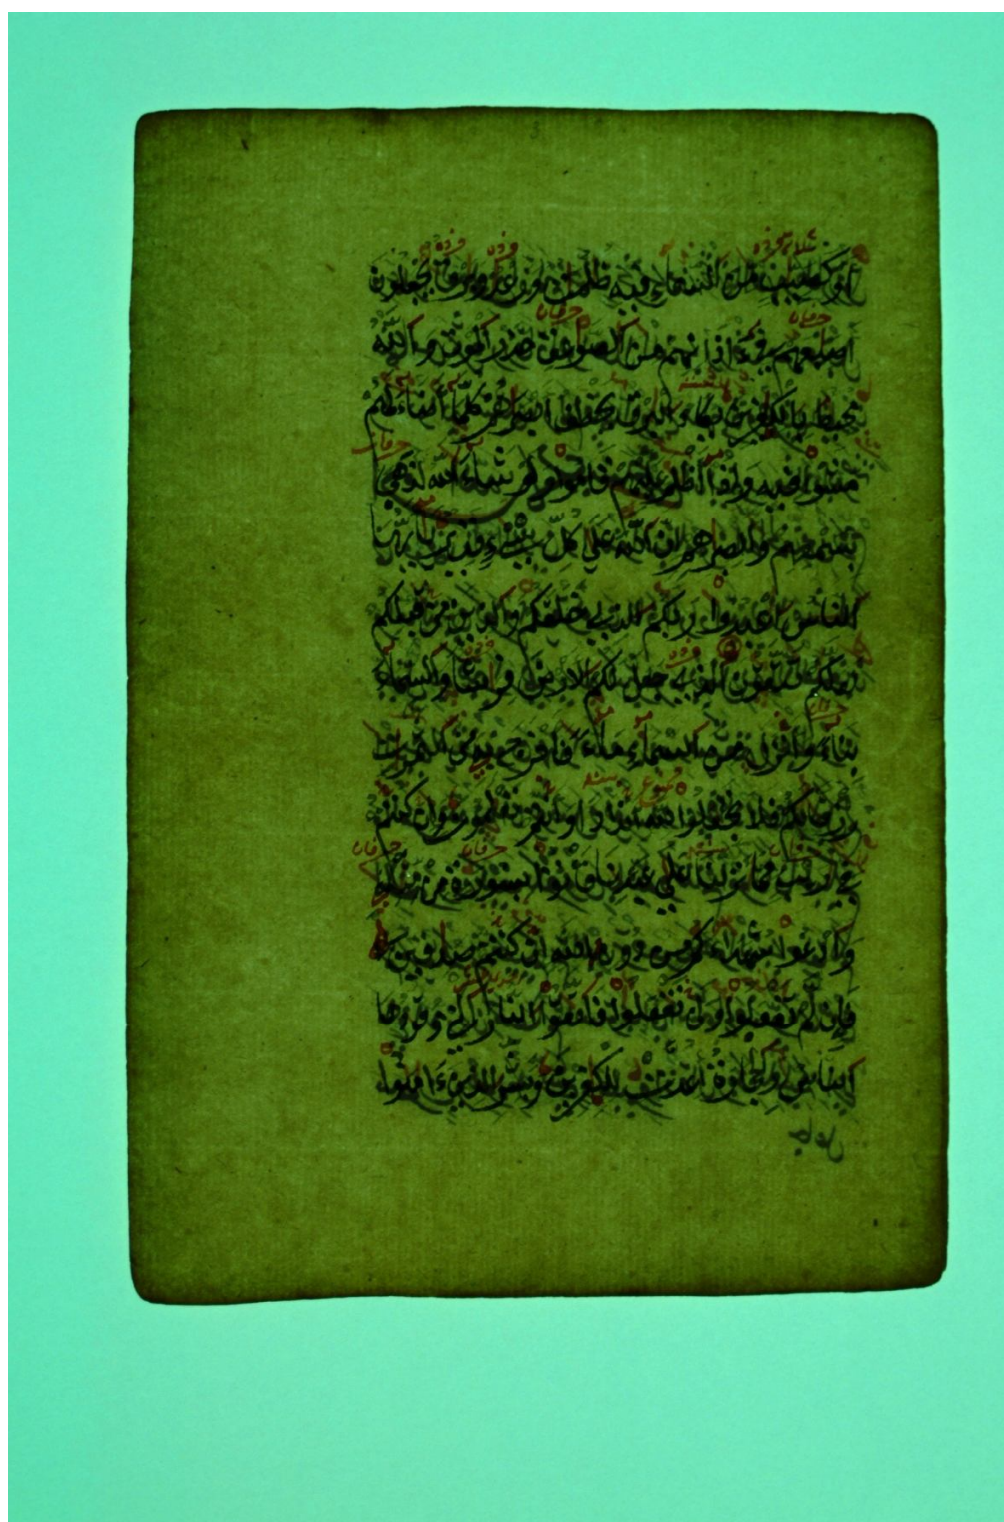 أو كصيب من السماء فيه ظلمت ورعد وبرق يجعلون
حرفان حرفان
أصبعهم في ءاذانهم من الصواعق حذر الموت والله
محيط بالكفرين يكاد البرق يخطف أبصرهم كلما أضاء لهم
حرفان
مشوا فيه وإذا أظلم عليهم قاموا ولو شاء الله لذهب
بسمعهم وأبصرهم إن الله على كل شيء قدير يأيها
الناس اعبدوا ربكم الذي خلقكم والذين من قبلكم
لعلكم تتقون الذي جعل لكم الأرض فراشا والسماء
بناء وأنزل من السماء ماء فأخرج به من الثمرات
رزقا لكم فلا تجعلوا لله أندادا وأنتم تعلمون وإن كنتم
حرفان حرفان
في ريب مما نزلنا على عبدنا فأتوا بسورة من مثله
وادعوا شهداءكم من دون الله إن كنتم صدقين
فإن لم تفعلوا ولن تفعلوا فاتقوا النار التي وقودها
الناس والحجارة أعدت للكفرين وبشر الذين ءامنوا